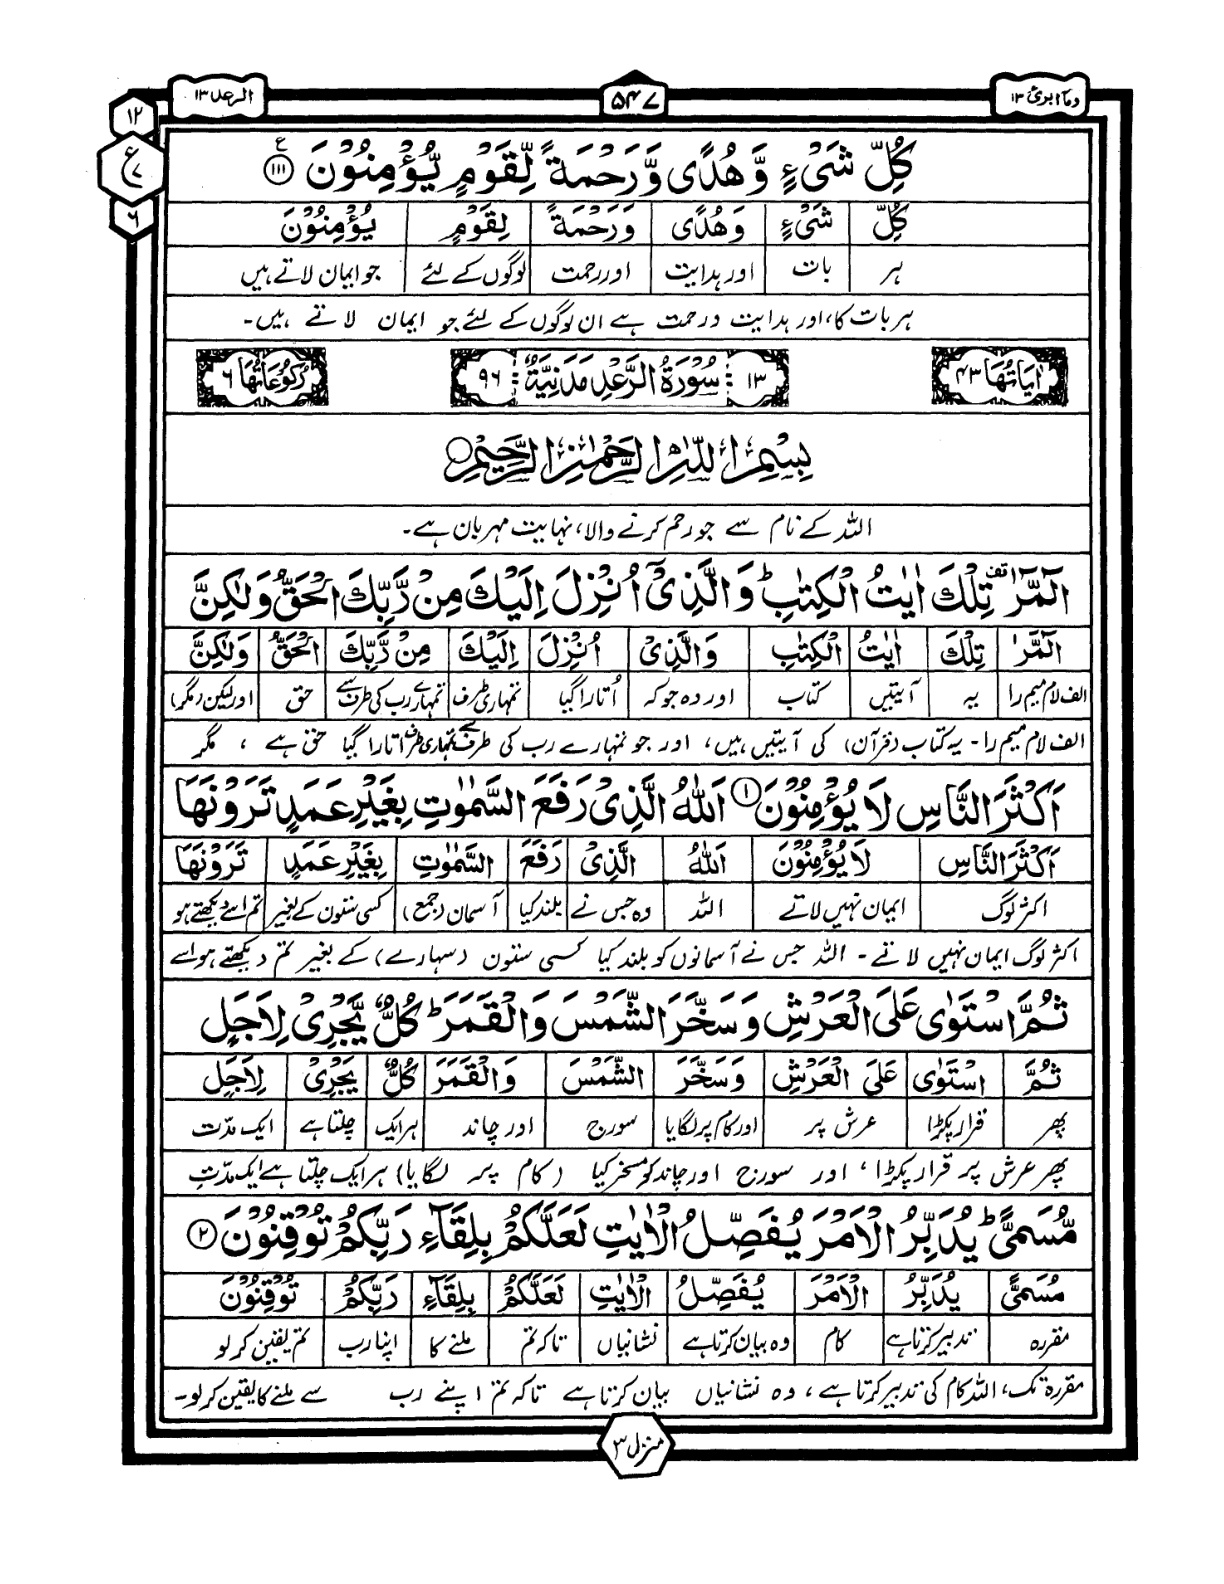 وما ابرئ ۱۳
۵۴۷
الرعد ۱۳
۱۲
ع
۷
۶
كُلِّ شَیْءٍ وَّ هُدًی وَّرَحْمَةً لِّقَوْمٍ یُّؤْمِنُوْنَ ﴿۱۱۱﴾ ع
كُلِّ | شَیْءٍ | وَهُدًی | وَرَحْمَةً | لِقَوْمٍ | یُؤْمِنُوْنَ
ہر | بات | اور ہدایت | اور رحمت | لوگوں کے لئے | جو ایمان لاتے ہیں
ہر بات کا، اور ہدایت و رحمت ہے ان لوگوں کے لئے جو ایمان لاتے ہیں۔
اٰیَاتُهَا ۴۳ | ۱۳ سُوْرَةُ الرَّعْدِ مَدَنِیَّةٌ ۹۶ | رُكُوْعَاتُهَا ۶
بِسْمِ اللّٰهِ الرَّحْمٰنِ الرَّحِیْمِ
اللہ کے نام سے جو رحم کرنے والا، نہایت مہربان ہے۔
الٓمّٓرٰ تِلْكَ اٰیٰتُ الْكِتٰبِ ؕ وَ الَّذِیْۤ اُنْزِلَ اِلَیْكَ مِنْ رَّبِّكَ الْحَقُّ وَلٰكِنَّ
الٓمّٓرٰ | تِلْكَ | اٰیٰتُ | الْكِتٰبِ | وَالَّذِیْۤ | اُنْزِلَ | اِلَیْكَ | مِنْ رَّبِّكَ | الْحَقُّ | وَلٰكِنَّ
الف لام میم را | یہ | آیتیں | کتاب | اور وہ جو کہ | اُتارا گیا | تمہاری طرف | تمہارے رب کی طرف سے | حق | اور لیکن (مگر)
الف لام میم را۔ یہ کتاب (قرآن) کی آیتیں ہیں، اور جو تمہارے رب کی طرف سے تمہاری طرف اتارا گیا حق ہے ، مگر
اَكْثَرَ النَّاسِ لَا یُؤْمِنُوْنَ ﴿۱﴾ اَللّٰهُ الَّذِیْ رَفَعَ السَّمٰوٰتِ بِغَیْرِ عَمَدٍ تَرَوْنَهَا
اَكْثَرَ النَّاسِ | لَا یُؤْمِنُوْنَ | اَللّٰهُ | الَّذِیْ | رَفَعَ | السَّمٰوٰتِ | بِغَیْرِ عَمَدٍ | تَرَوْنَهَا
اکثر لوگ | ایمان نہیں لاتے | اللہ | وہ جس نے | بلند کیا | آسمان (جمع) | کسی ستون کے بغیر | تم اسے دیکھتے ہو
اکثر لوگ ایمان نہیں لاتے۔ اللہ جس نے آسمانوں کو بلند کیا کسی ستون (سہارے) کے بغیر تم دیکھتے ہو اسے
ثُمَّ اسْتَوٰی عَلَی الْعَرْشِ وَسَخَّرَ الشَّمْسَ وَ الْقَمَرَ ؕ كُلٌّ یَّجْرِیْ لِاَجَلٍ
ثُمَّ | اسْتَوٰی | عَلَی الْعَرْشِ | وَسَخَّرَ | الشَّمْسَ | وَالْقَمَرَ | كُلٌّ | یَجْرِیْ | لِاَجَلٍ
پھر | قرار پکڑا | عرش پر | اور کام پر لگایا | سورج | اور چاند | ہر ایک | چلتا ہے | ایک مدت
پھر عرش پر قرار پکڑا ، اور سورج اور چاند کو مسخر کیا (کام پر لگایا) ہر ایک چلتا ہے ایک مدّتِ
مُّسَمًّی ؕ یُدَبِّرُ الْاَمْرَ یُفَصِّلُ الْاٰیٰتِ لَعَلَّكُمْ بِلِقَآءِ رَبِّكُمْ تُوْقِنُوْنَ ﴿۲﴾
مُسَمًّی | یُدَبِّرُ | الْاَمْرَ | یُفَصِّلُ | الْاٰیٰتِ | لَعَلَّكُمْ | بِلِقَآءِ | رَبِّكُمْ | تُوْقِنُوْنَ
مقررہ | تدبیر کرتا ہے | کام | وہ بیان کرتا ہے | نشانیاں | تاکہ تم | ملنے کا | اپنا رب | تم یقین کر لو
مقررہ تک، اللہ کام کی تدبیر کرتا ہے ، وہ نشانیاں بیان کرتا ہے تاکہ تم اپنے رب سے ملنے کا یقین کر لو۔
منزل ۳